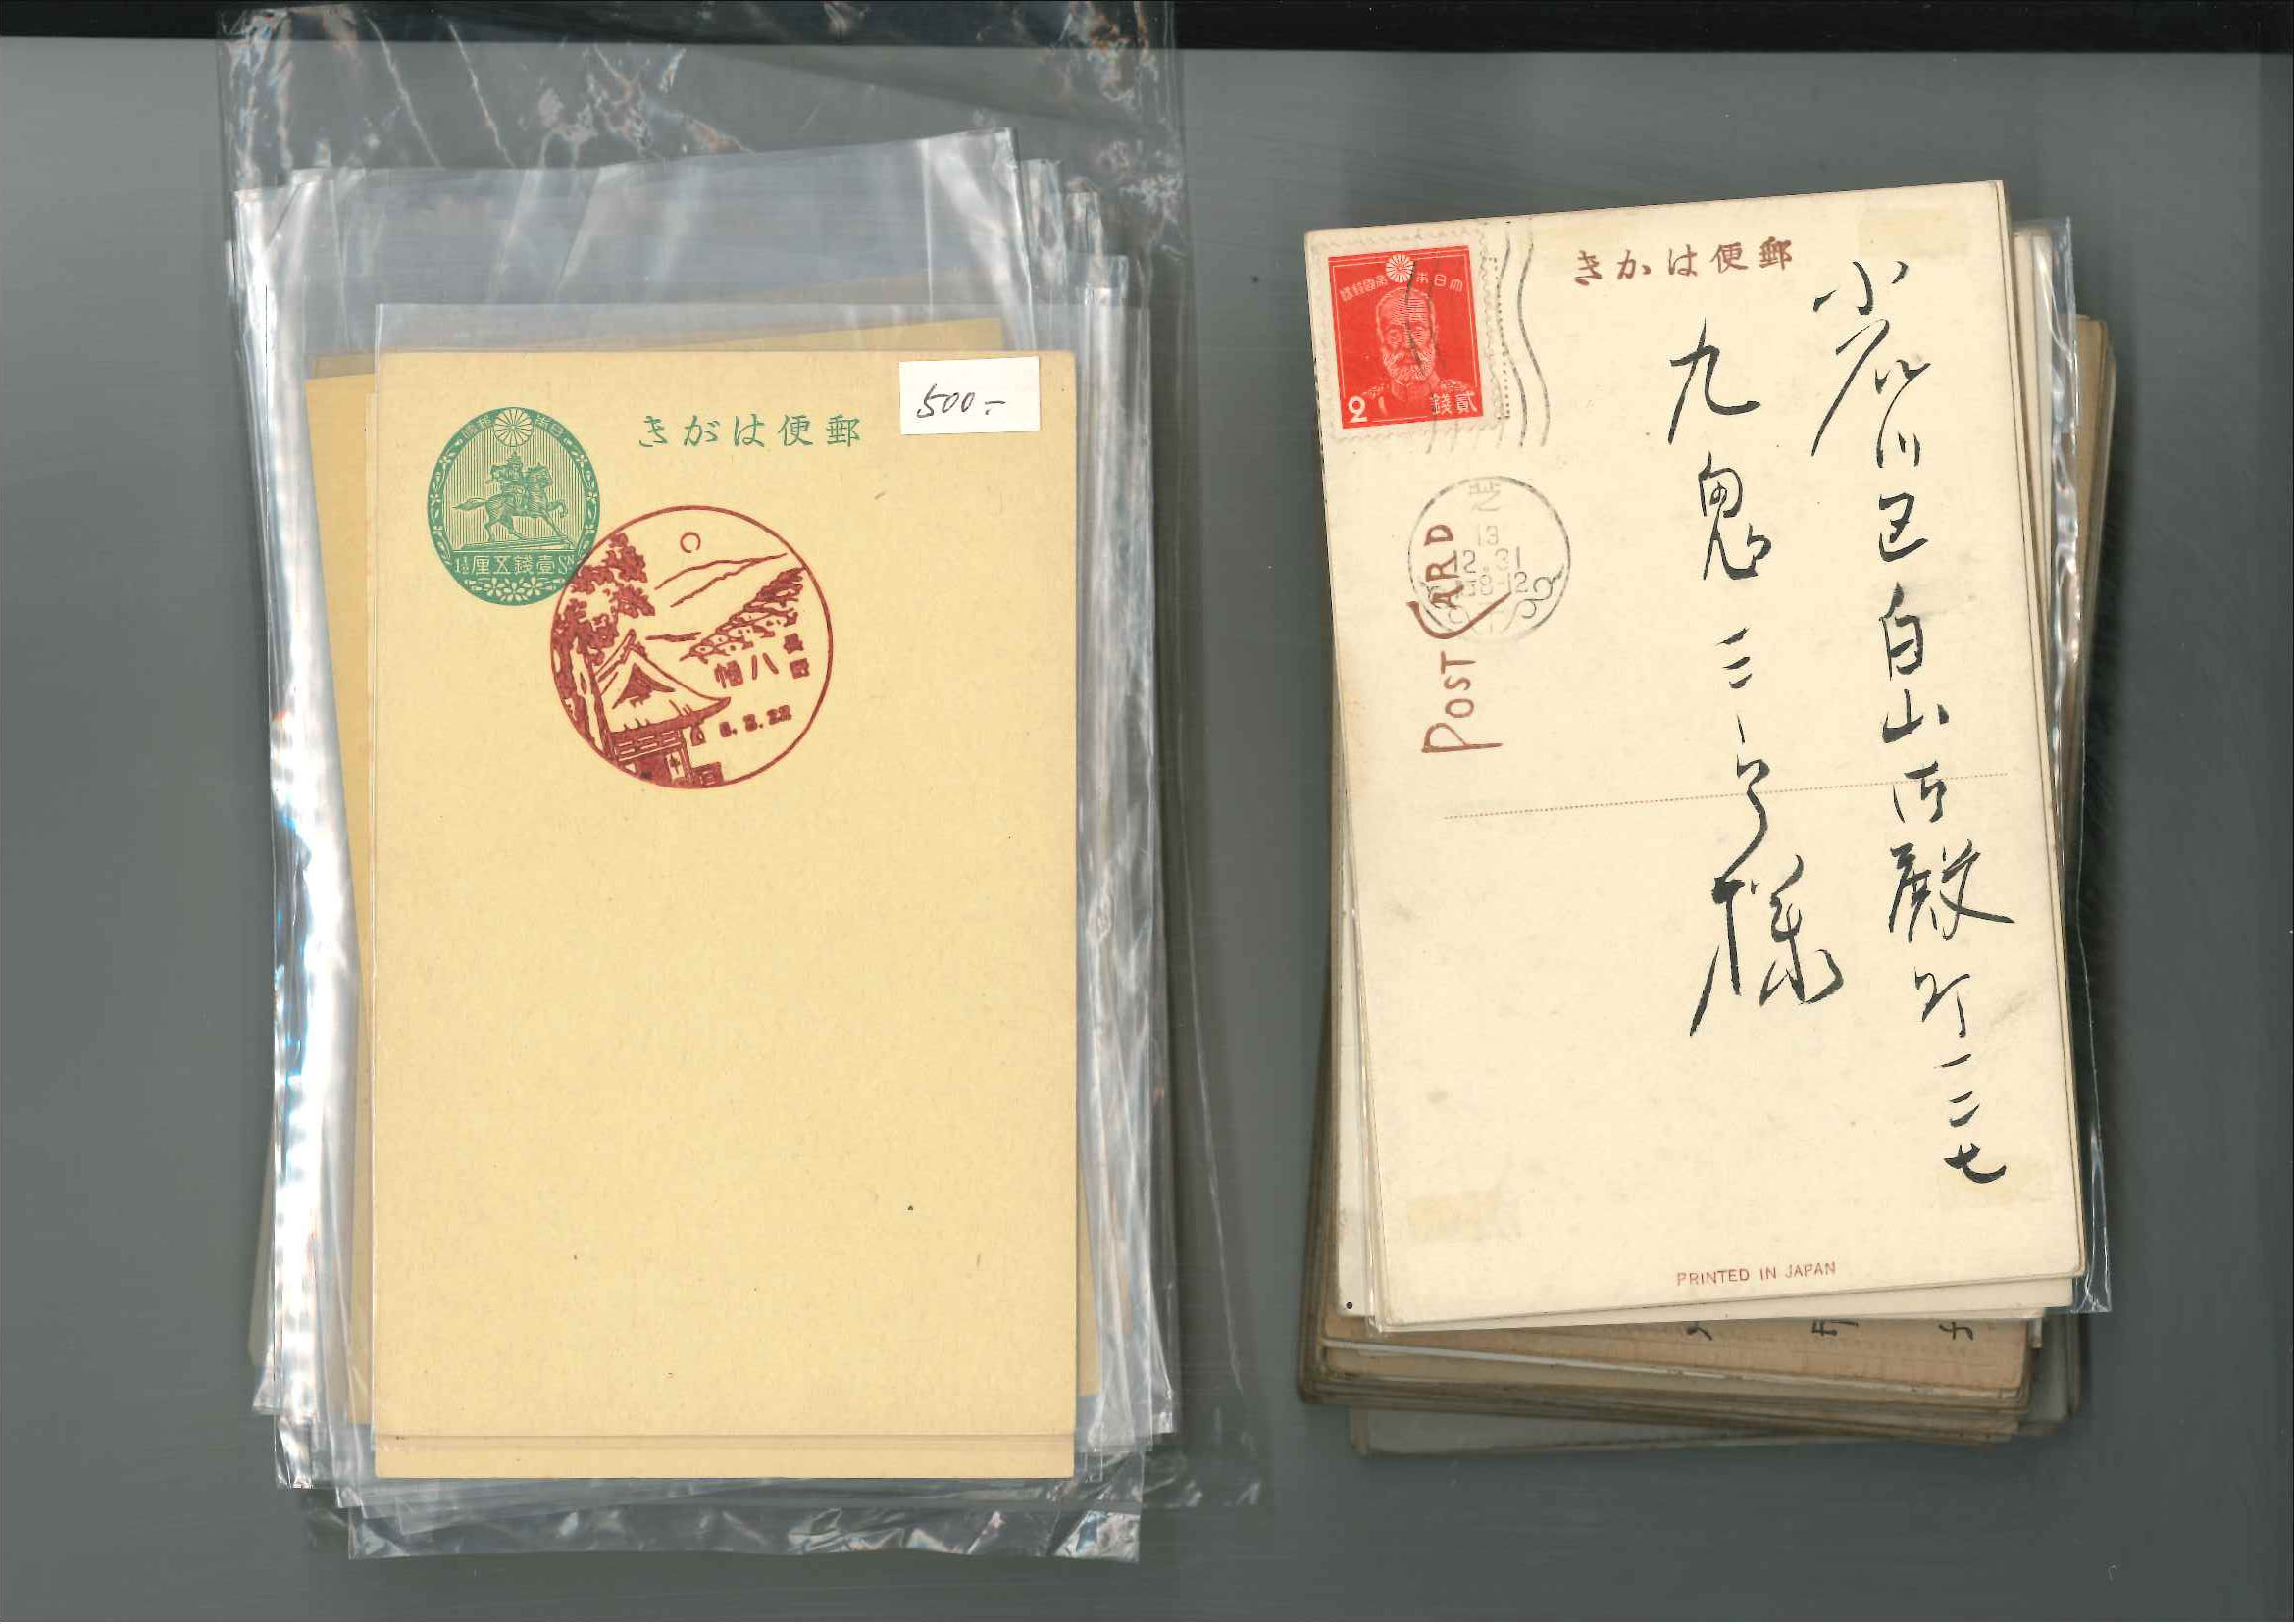 500-
郵便はがき
日本郵便
1½ 壹錢五厘 SN
長野
八幡
8.3.22
郵便はかき
大日本帝國郵便
2 貳錢
芝
13
12.31
8-12
POST CARD
小石川区白山御殿町一二七
九鬼三郎様
PRINTED IN JAPAN